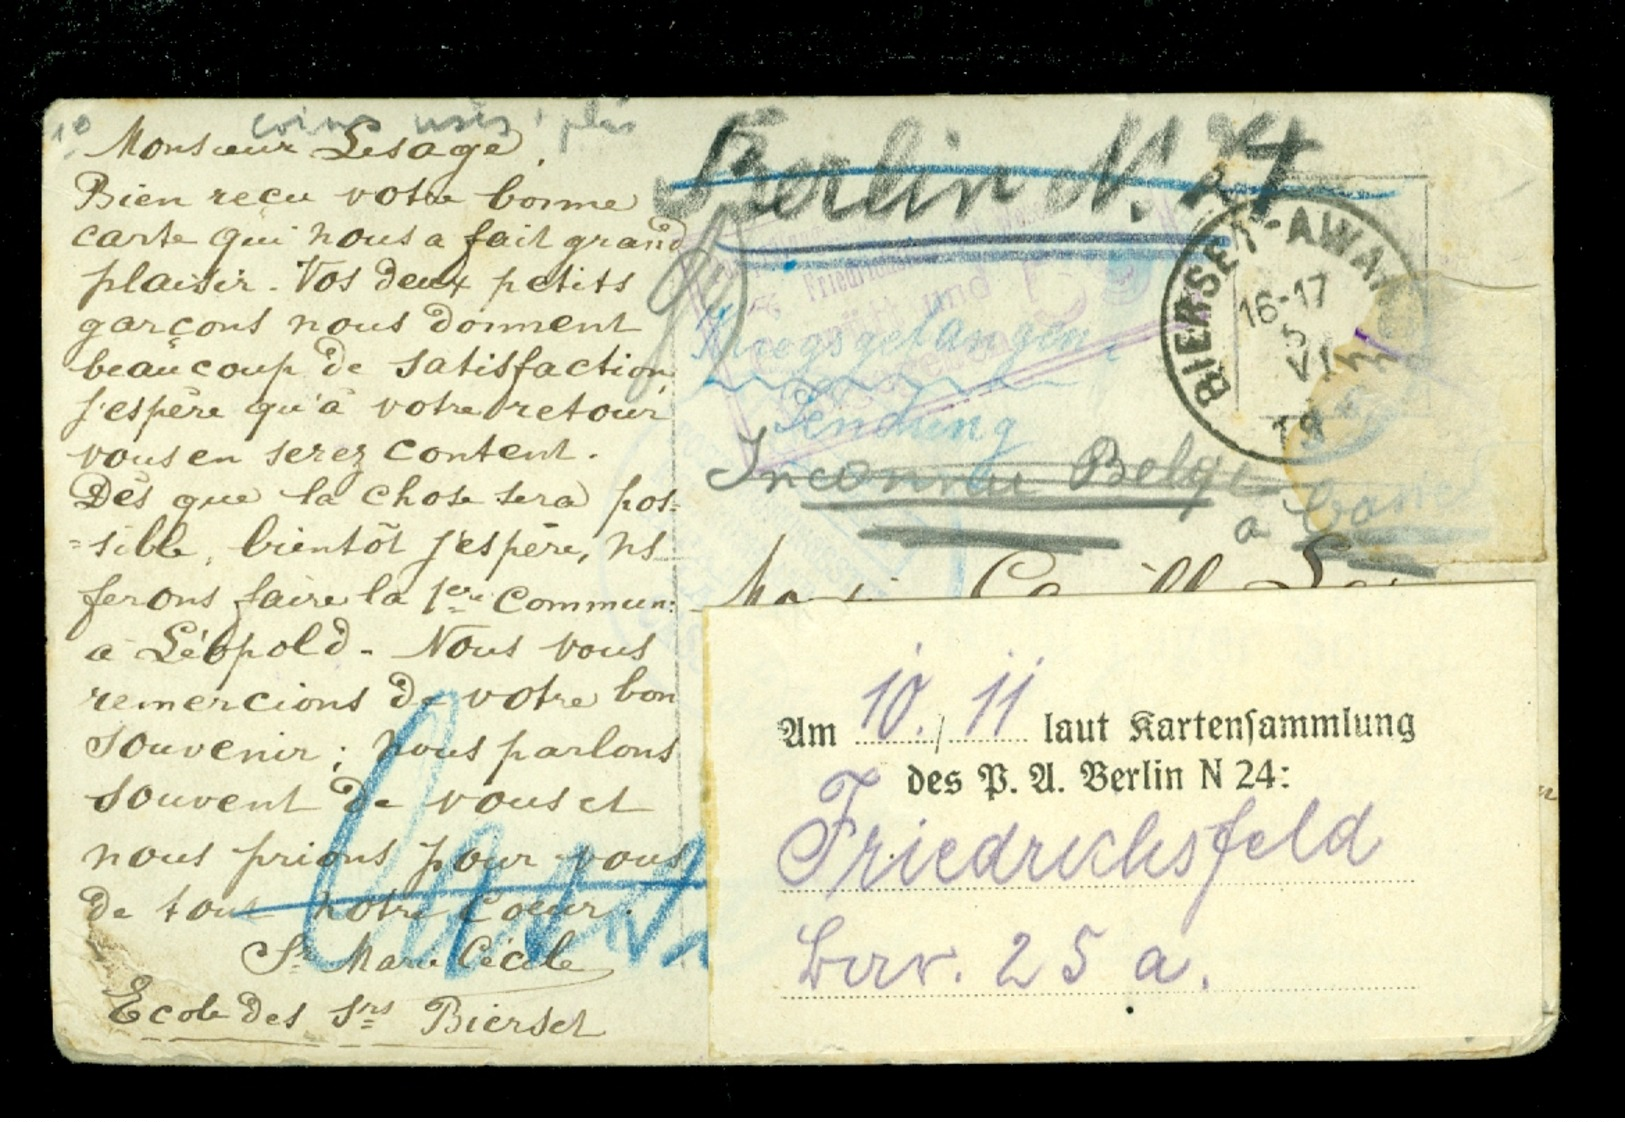 10 coins usés, plis
Monsieur Lesage,
Bien reçu votre bonne
carte qui nous a fait grand
plaisir. Vos deux petits
garçons nous donnent
beaucoup de satisfaction,
j'espère qu'à votre retour
vous en serez content.
Dès que la chose sera pos-
=sible, bientôt j'espère, ns
ferons faire la 1ère Commun:
à Léopold. Nous vous
remercions de votre bon
souvenir; nous parlons
souvent de vous et
nous prions pour vous
de tout notre Cœur.
Sr Marie Cécile
Ecole des Srs Bierset
Berlin N. 24
BIERSET-AWA
16-17
5
VI
19
Kriegsgefangen
Sendung
Inconnu Belge
a
Am 10./11 laut Kartensammlung
des P. A. Berlin N 24:
Friedrichsfeld
25 a.